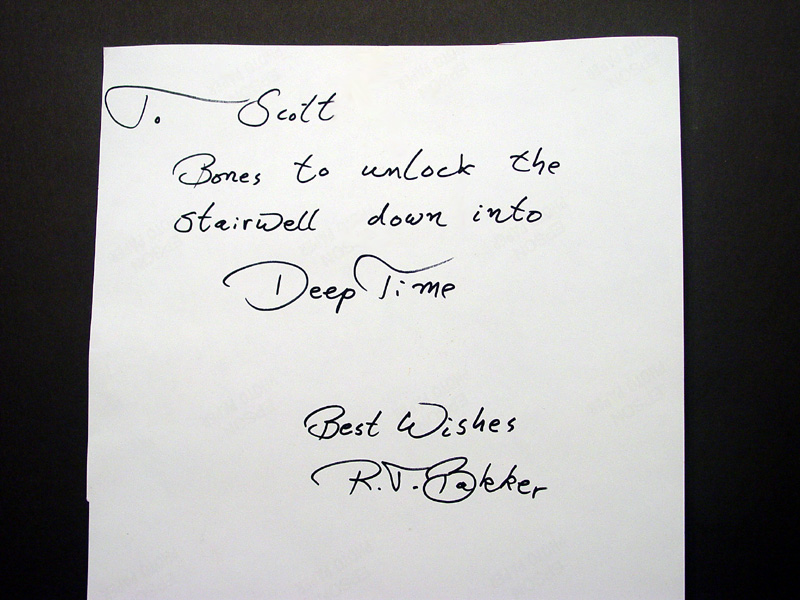 To Scott
Bones to unlock the
stairwell down into
Deep Time
Best Wishes
R.T. Bakker